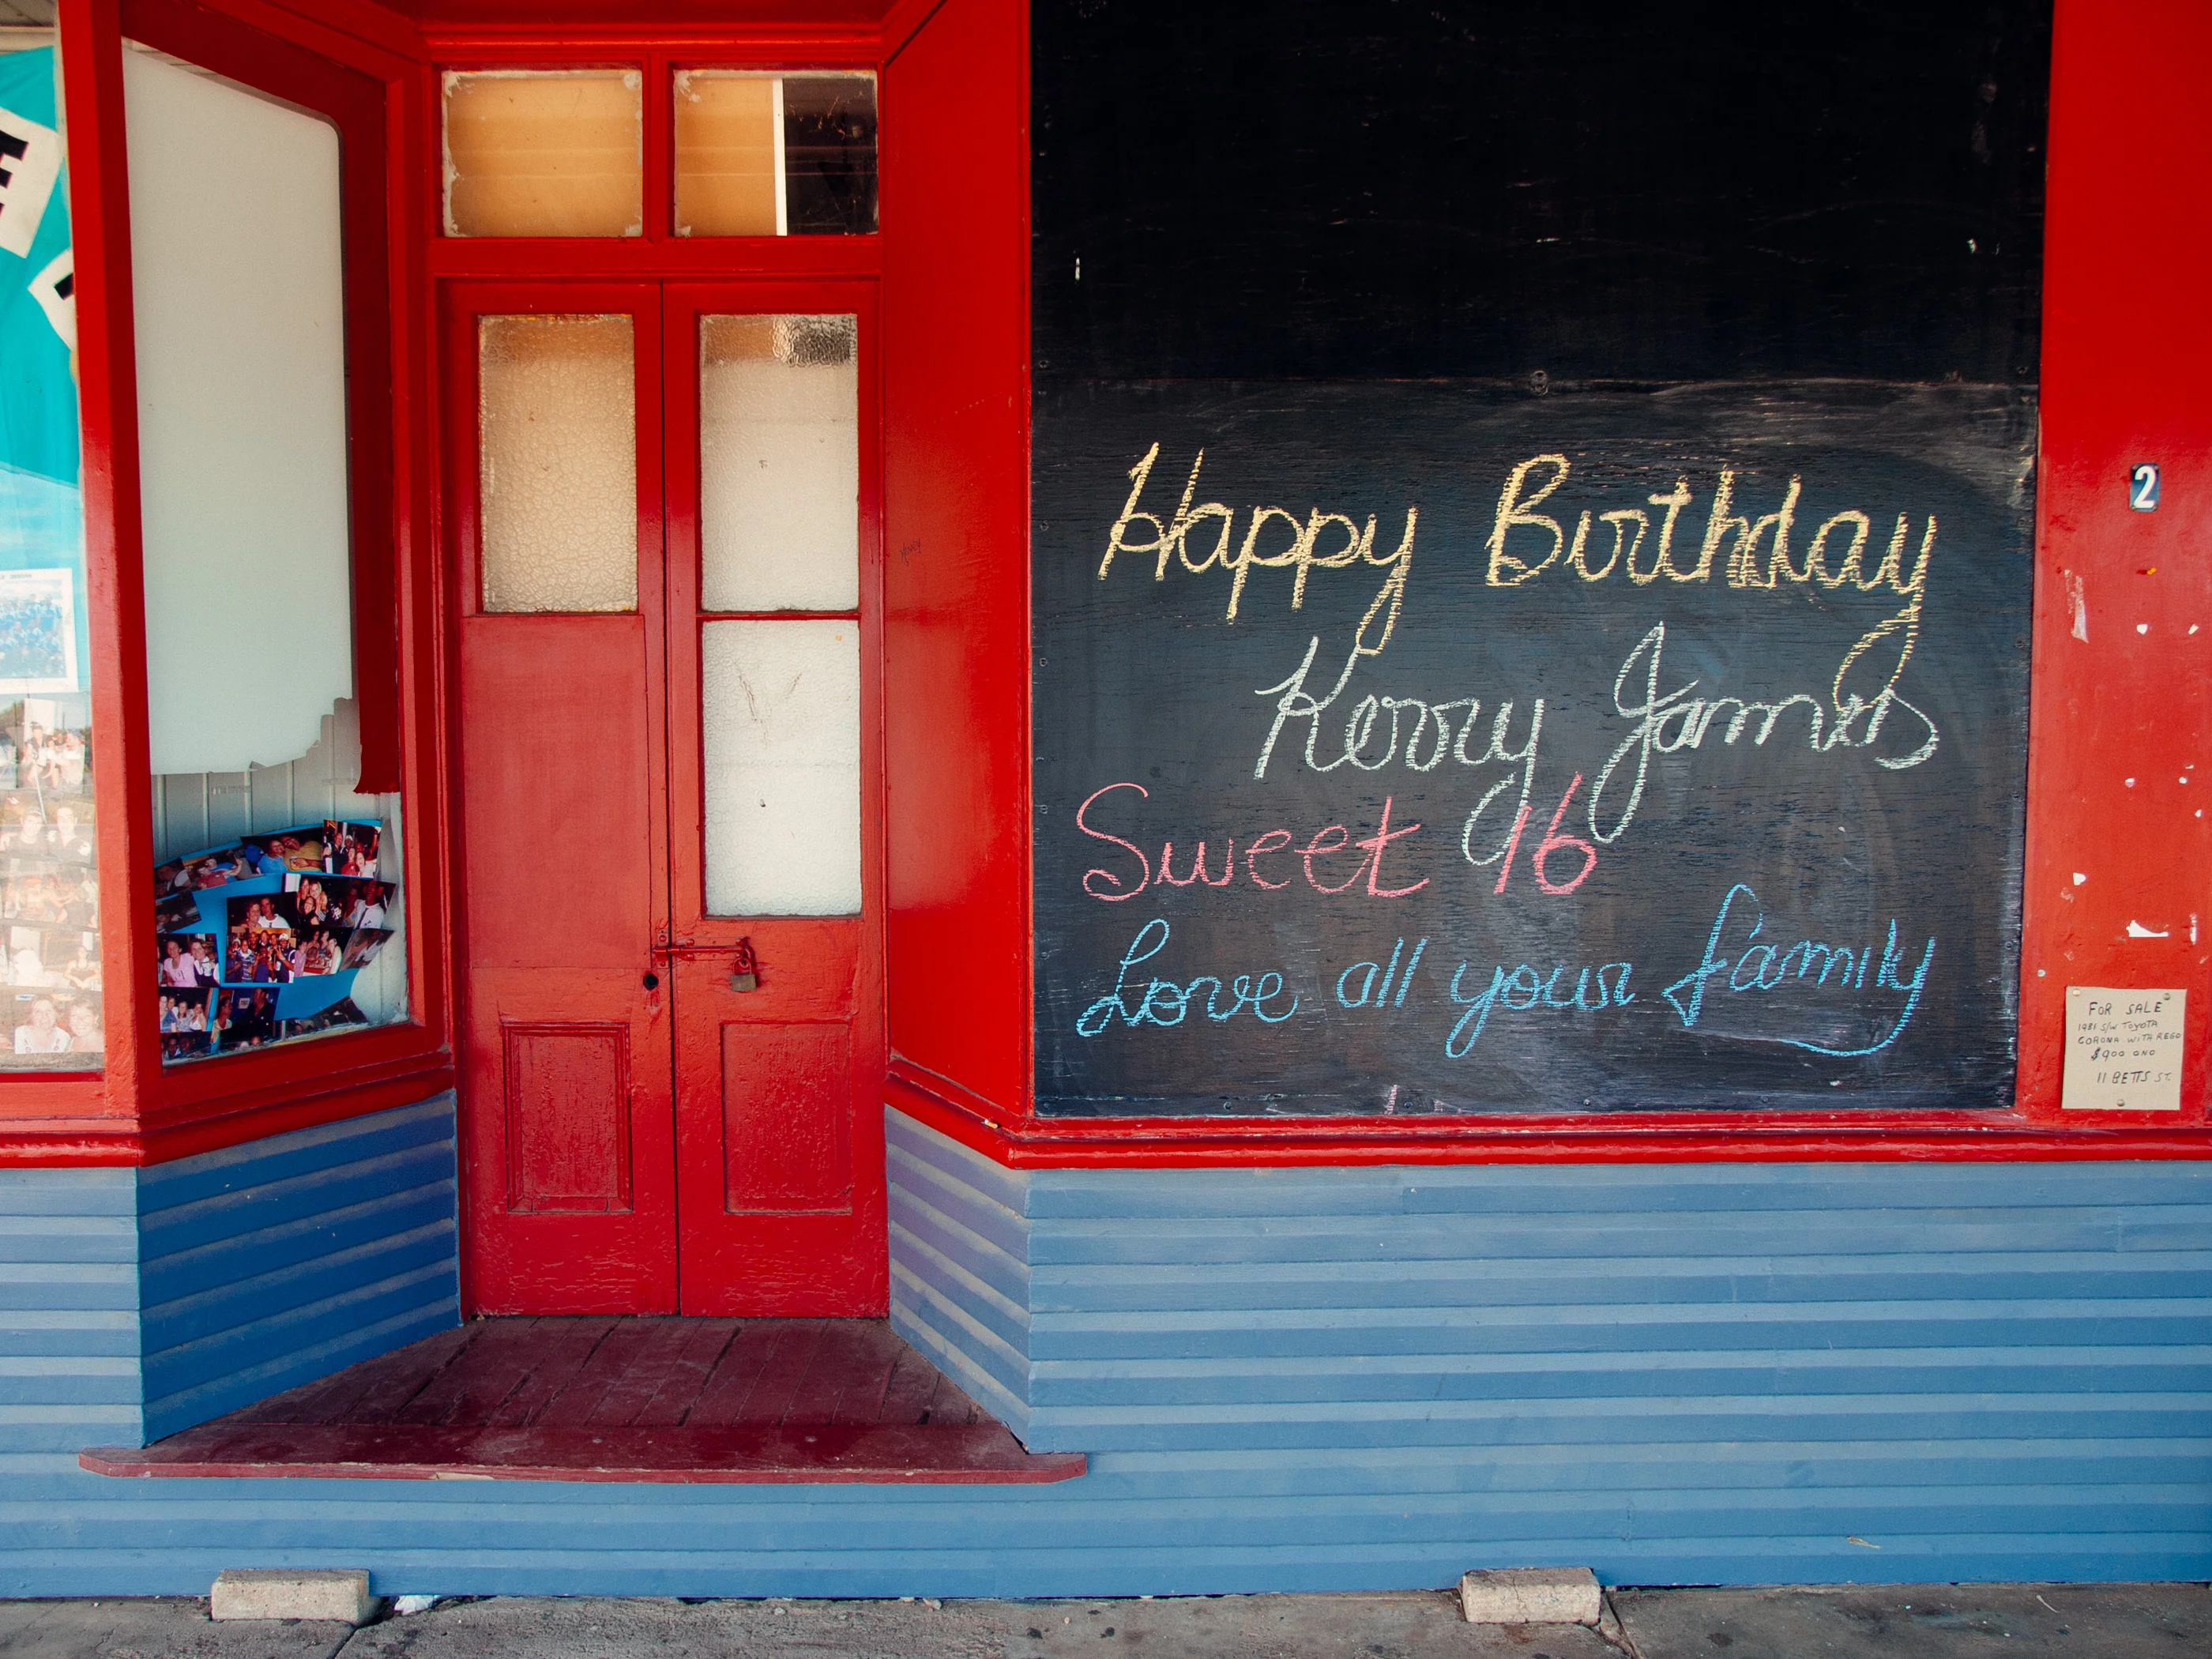 Happy Birthday
Kerry James
Sweet 16
Love all your family
2
FOR SALE
1981 S/W TOYOTA
CORONA WITH REGO
$900 ONO
11 BETTS ST.